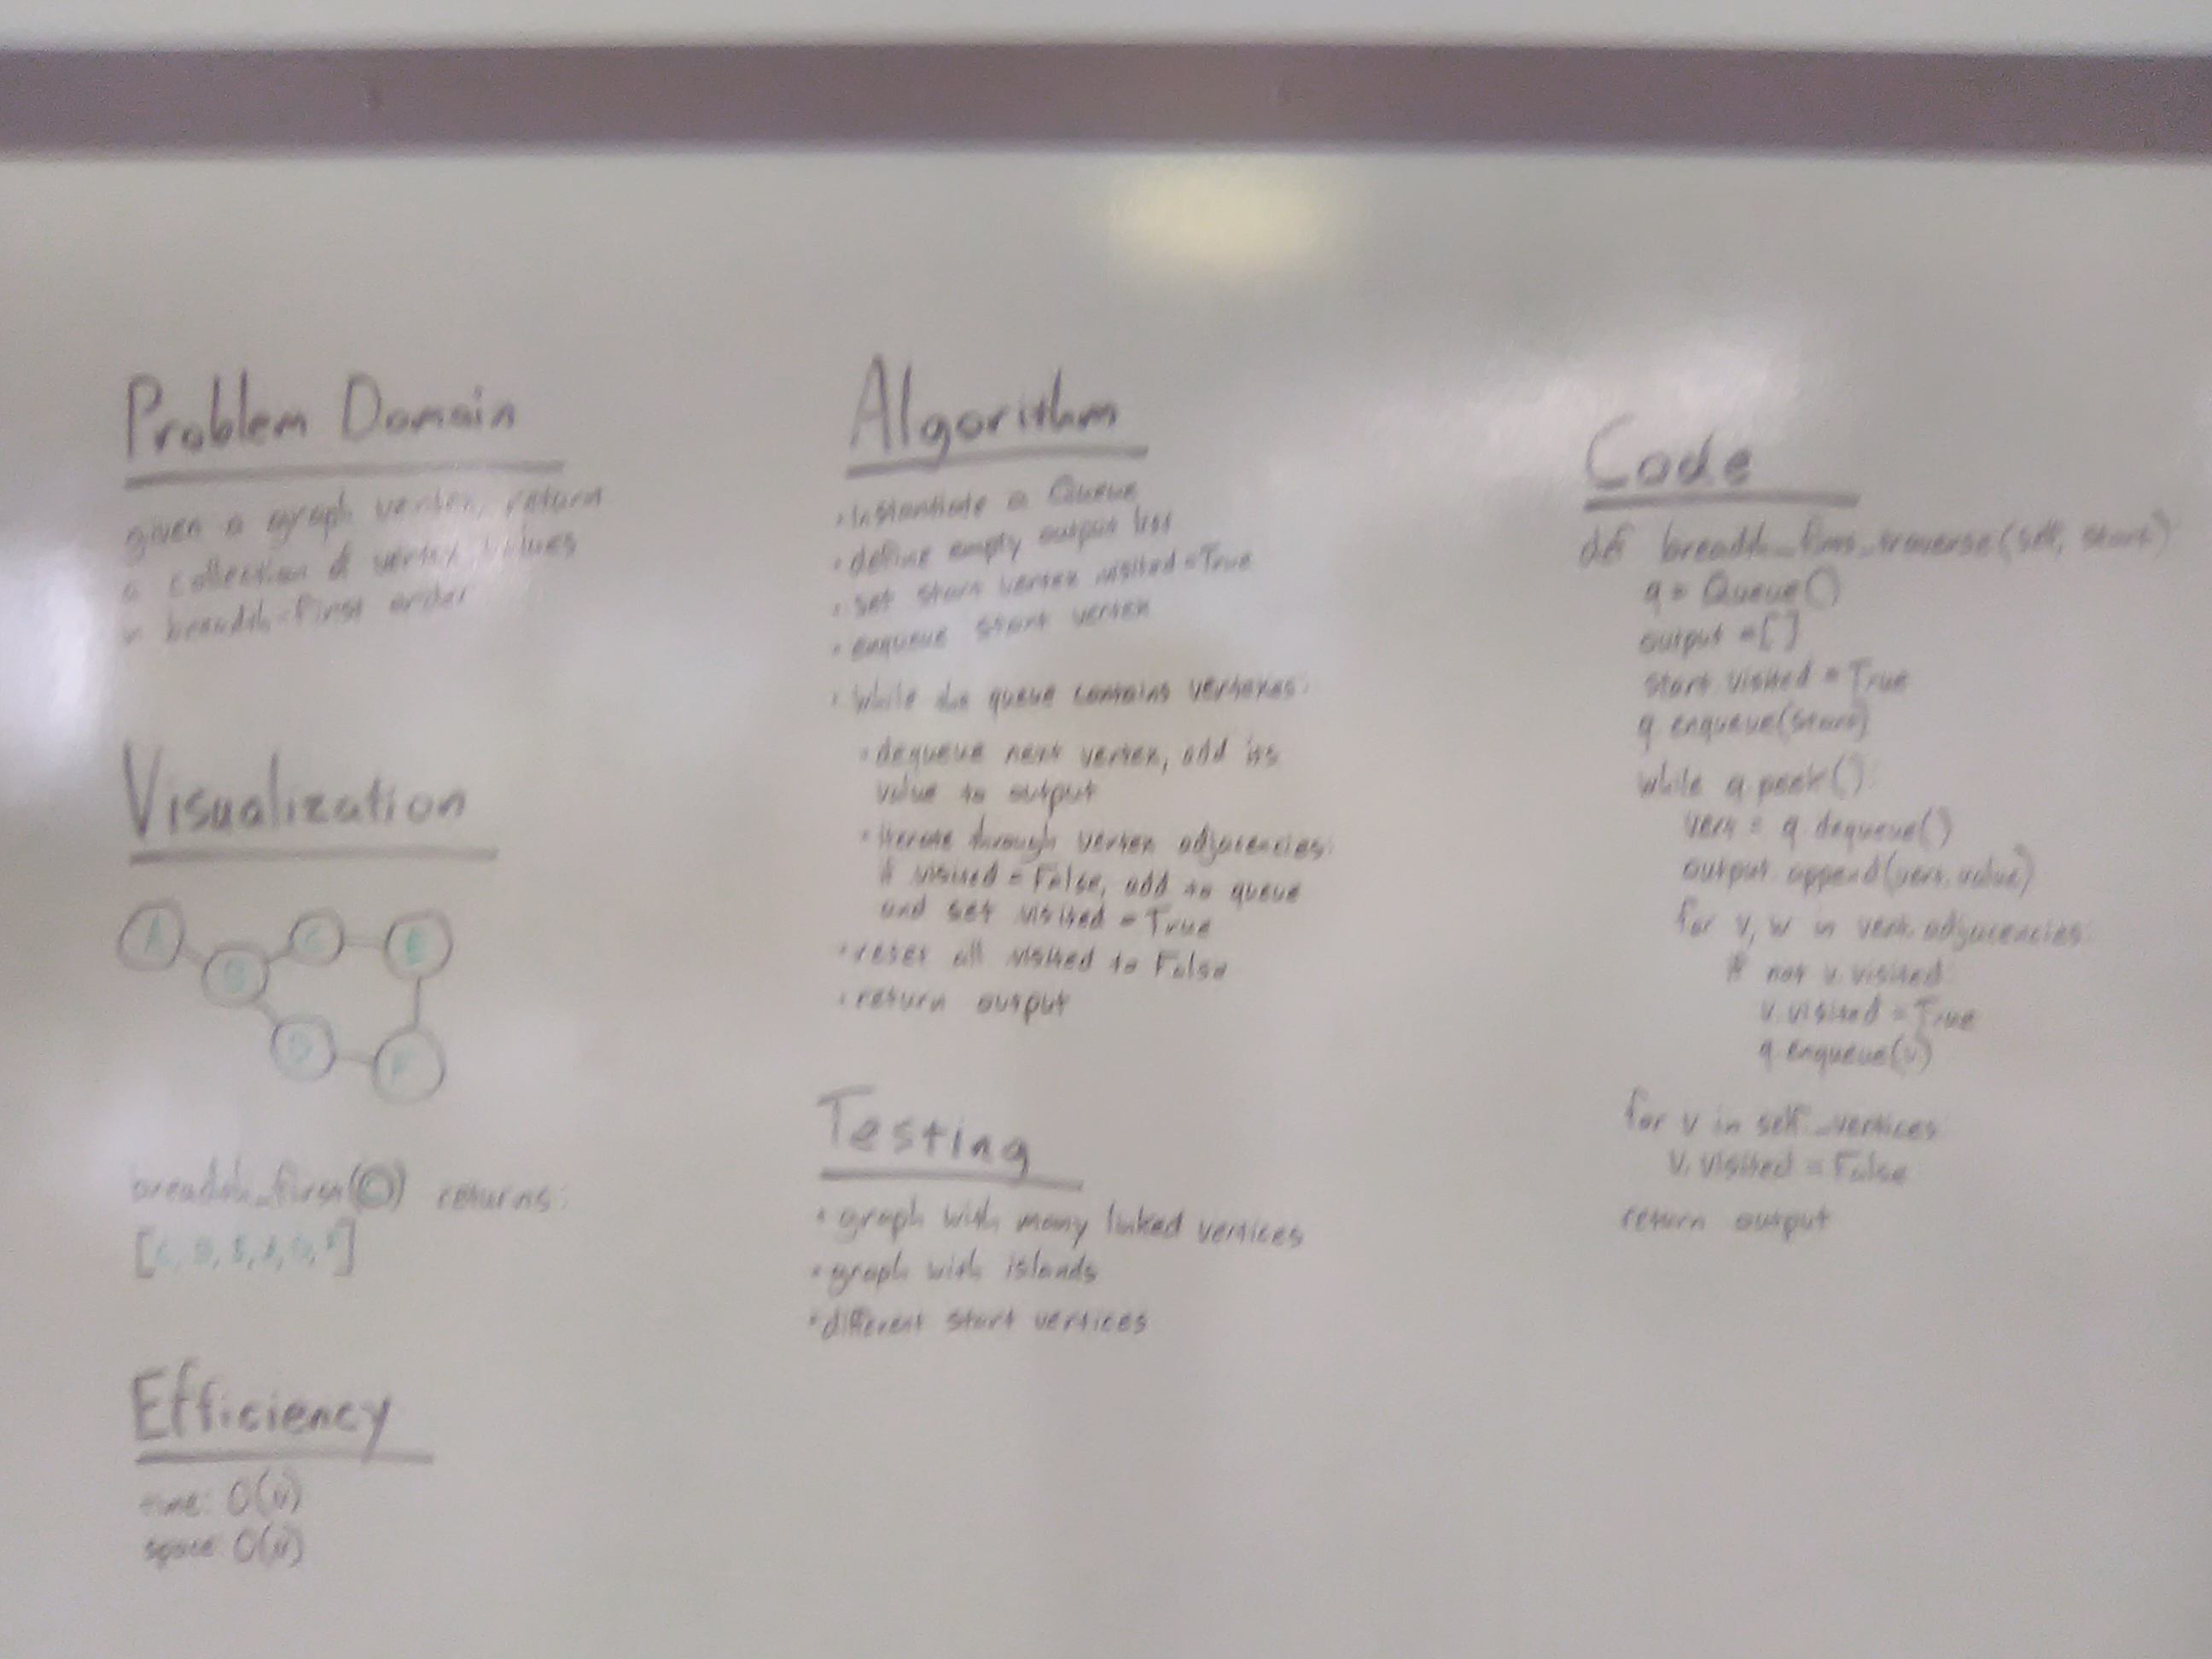 Problem Domain
given a graph vertex, return
a collection of vertex values
in breadth-first order
Visualization
A
B
C
E
D
F
breadth_first(C) returns:
[C, B, E, A, D, F]
Efficiency
time: O(n)
space: O(n)
Algorithm
• instantiate a Queue
• define empty output list
• set start vertex visited = True
• enqueue start vertex
• while the queue contains vertexes:
• dequeue next vertex, add its
value to output
• iterate through vertex adjacencies:
if visited = False, add to queue
and set visited = True
• reset all visited to False
• return output
Testing
• graph with many linked vertices
• graph with islands
• different start vertices
Code
def breadth_first_traverse(self, start)
q = Queue()
output = []
start.visited = True
q.enqueue(start)
while q.peek():
vert = q.dequeue()
output.append(vert.value)
for v, w in vert.adjacencies:
if not v.visited:
v.visited = True
q.enqueue(v)
for v in self._vertices:
v.visited = False
return output